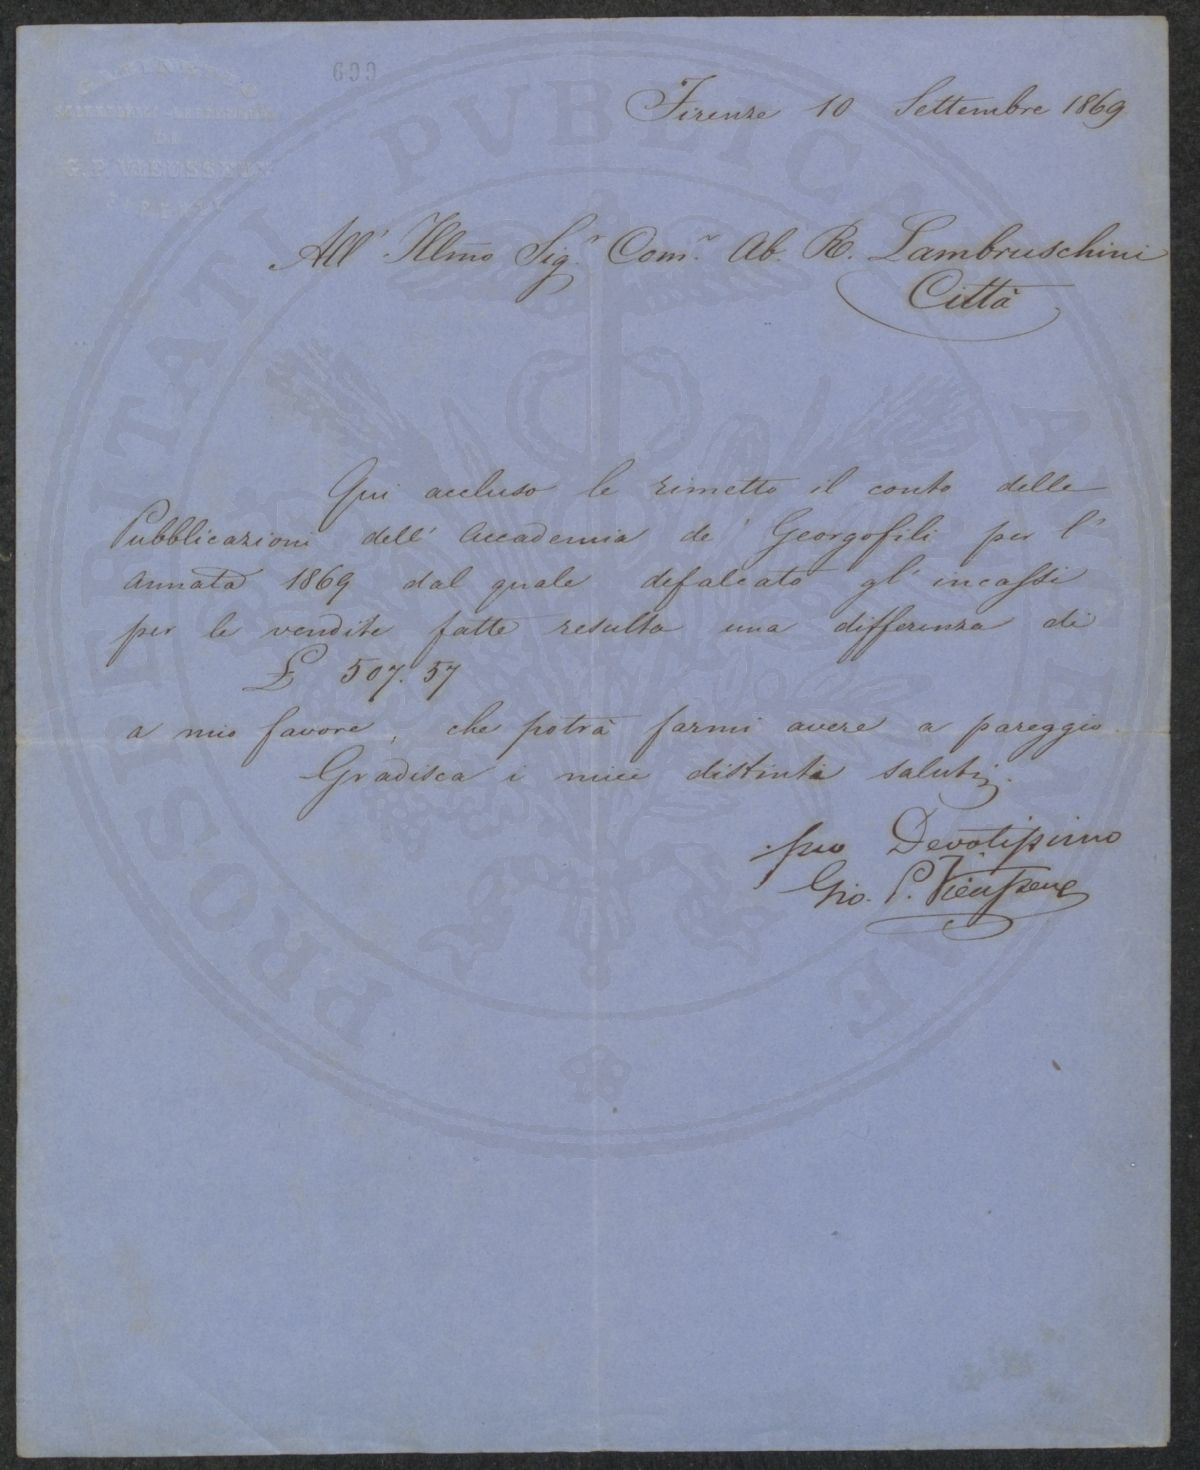 GABINETTO
SCIENTIFICO-LETTERARIO
DI
G. P. VIEUSSEUX
FIRENZE
699
Firenze 10 Settembre 1869
All' Illmo Sigr. Comr. Ab. R. Lambruschini
Città
Qui accluso le rimetto il conto delle
Pubblicazioni dell' Accademia de' Georgofili per l'
annata 1869 dal quale defalcato gl' incassi
per le vendite fatte resulta una differenza di
£ 507.57
a mio favore, che potrà farmi avere a pareggio.
Gradisca i miei distinti saluti.
suo Devotissimo
Gio. P. Vieusseux
PROSPERITATI PUBLICAE AUGENDAE